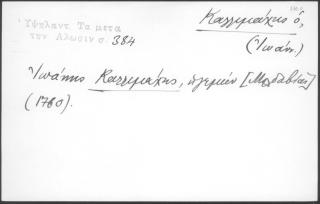 Ὑψηλαντ. Τα μετα
την Αλωσιν σ. 384
Καλλιμάχης ὁ,
(Ἰωάν.)
Ἰωάννης Καλλιμάχης, ἡγεμών [Μολδαβίας]
(1760).